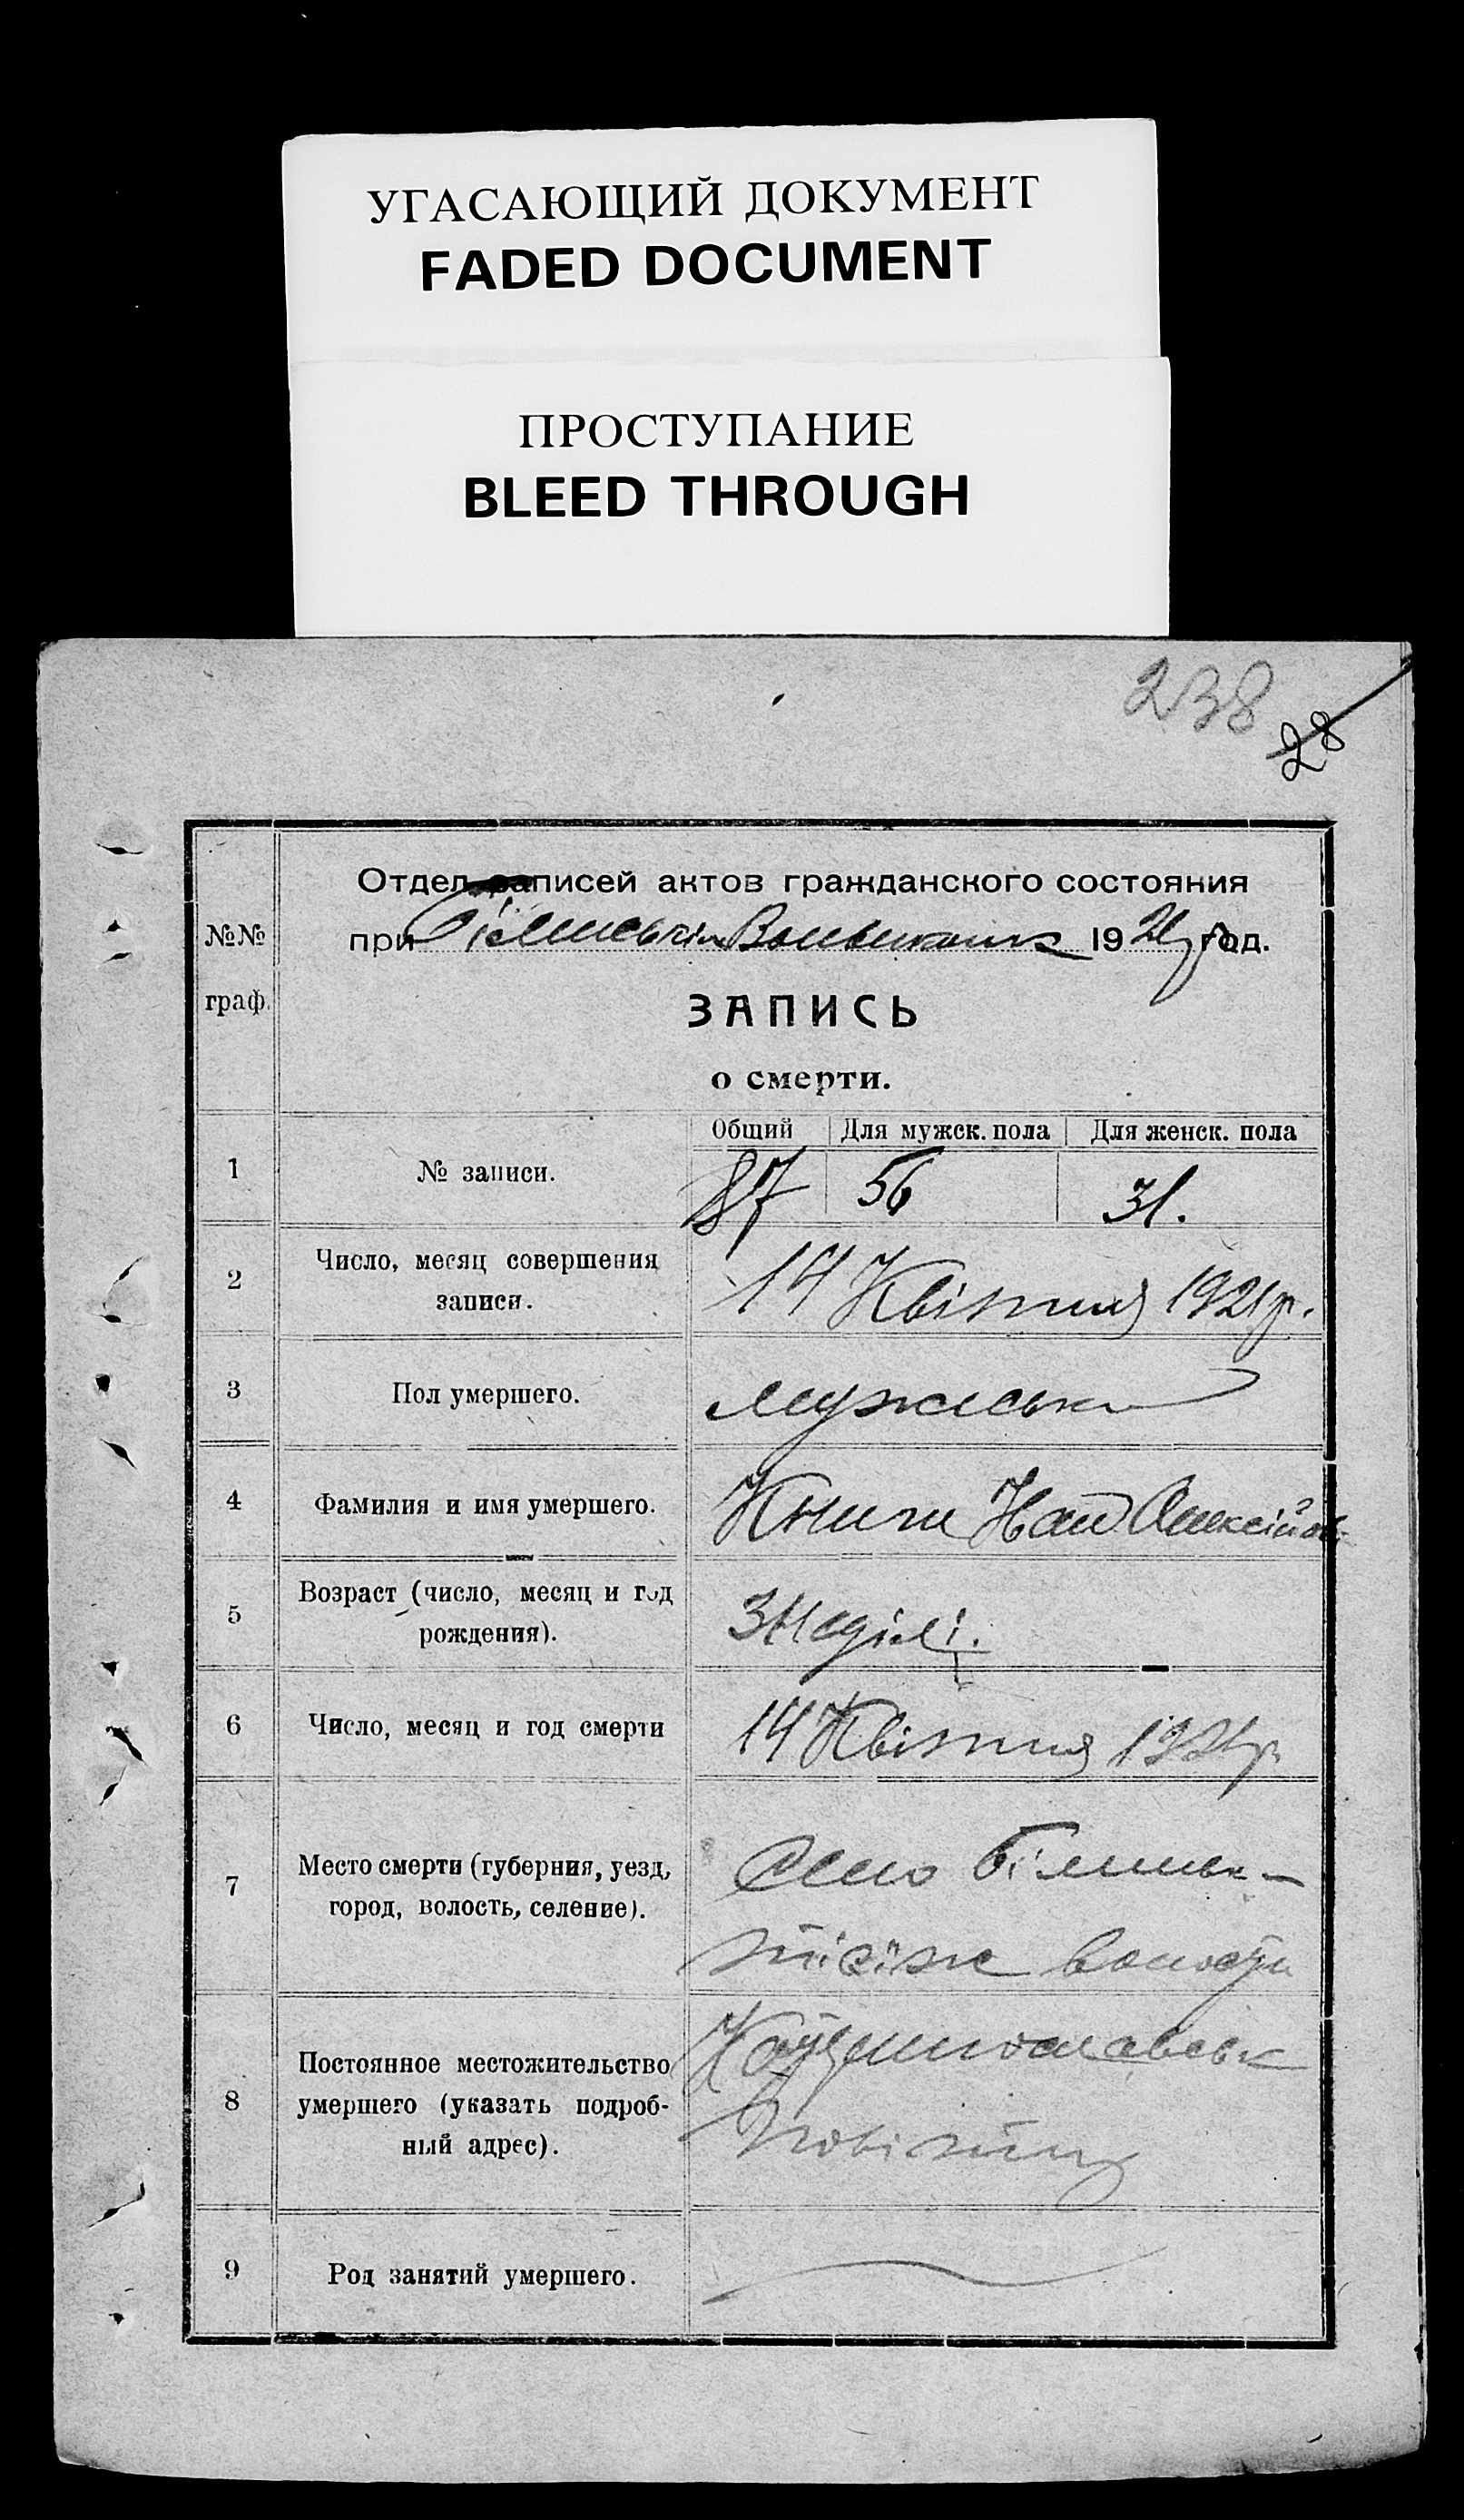 УГАСАЮЩИЙ ДОКУМЕНТ
FADED DOCUMENT
ПРОСТУПАНИЕ
BLEED THROUGH
238
28
Отдел записей актов гражданского состояния
при 1921 год.
№№
граф.
ЗАПИСЬ
о смерти.
Общий Для мужск. пола Для женск. пола
1 № записи. 87 56 31.
2 Число, месяц совершения
записи.
14 Квітня 1921 р.
3 Пол умершего. мужеська
4 Фамилия и имя умершего. Олексійов
5 Возраст (число, месяц и год
рождения).
3 неділі.
6 Число, месяц и год смерти 14 Квітня 1921 р.
7 Место смерти (губерния, уезд,
город, волость, селение).
Село
волости
8 Постоянное местожительство
умершего (указать подроб-
ный адрес).
9 Род занятий умершего.